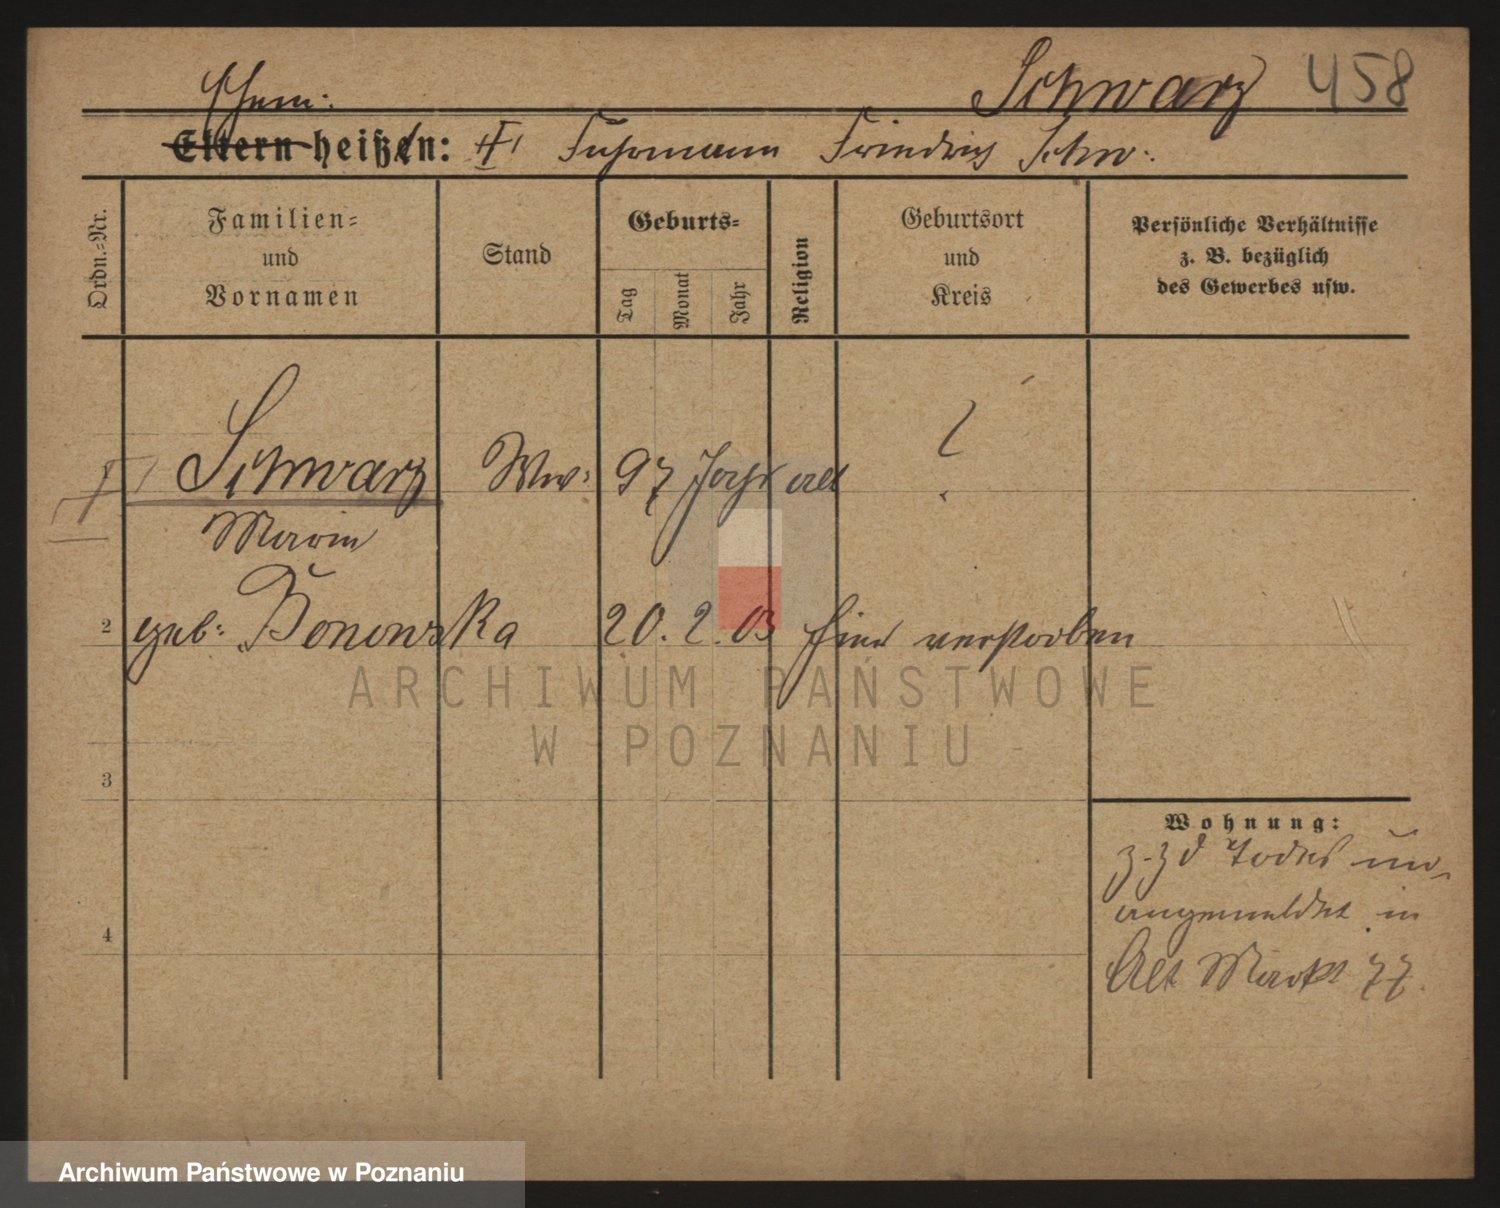 Schwarz 458
Ehem:
Eltern heißen: † Fuhrmann Friedrich Schw:
Ordn.-Nr.
Familien-
und
Vornamen
Stand
Geburts-
Tag
Monat
Jahr
Religion
Geburtsort
und
Kreis
Persönliche Verhältnisse
z. B. bezüglich
des Gewerbes usw.
† Schwarz Ww: 97 Jahr alt ?
Marie
2 geb: Bonowska 20. 2. 03 hier verstorben
ARCHIWUM PAŃSTWOWE
W POZNANIU
3
4
Wohnung:
z. Z d Todes un-
angemeldet in
Alt Markt 77.
Archiwum Państwowe w Poznaniu